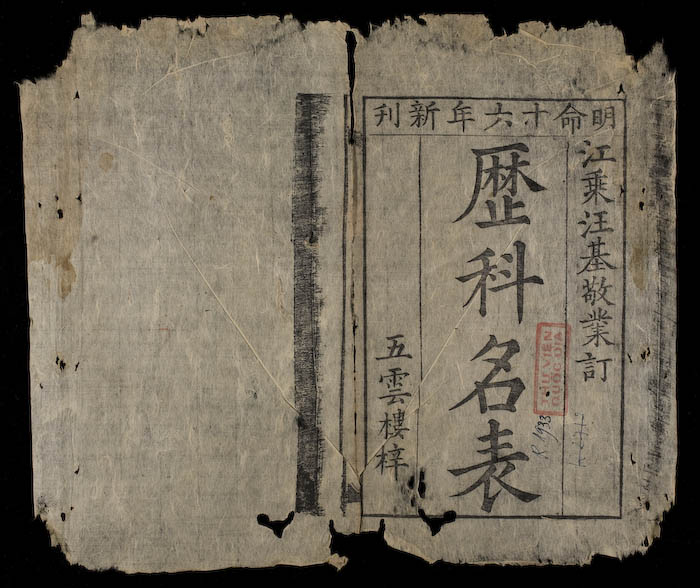 明命十六年新刊
江乗汪基敬業訂
歴科名表
五雲樓梓
R.1933